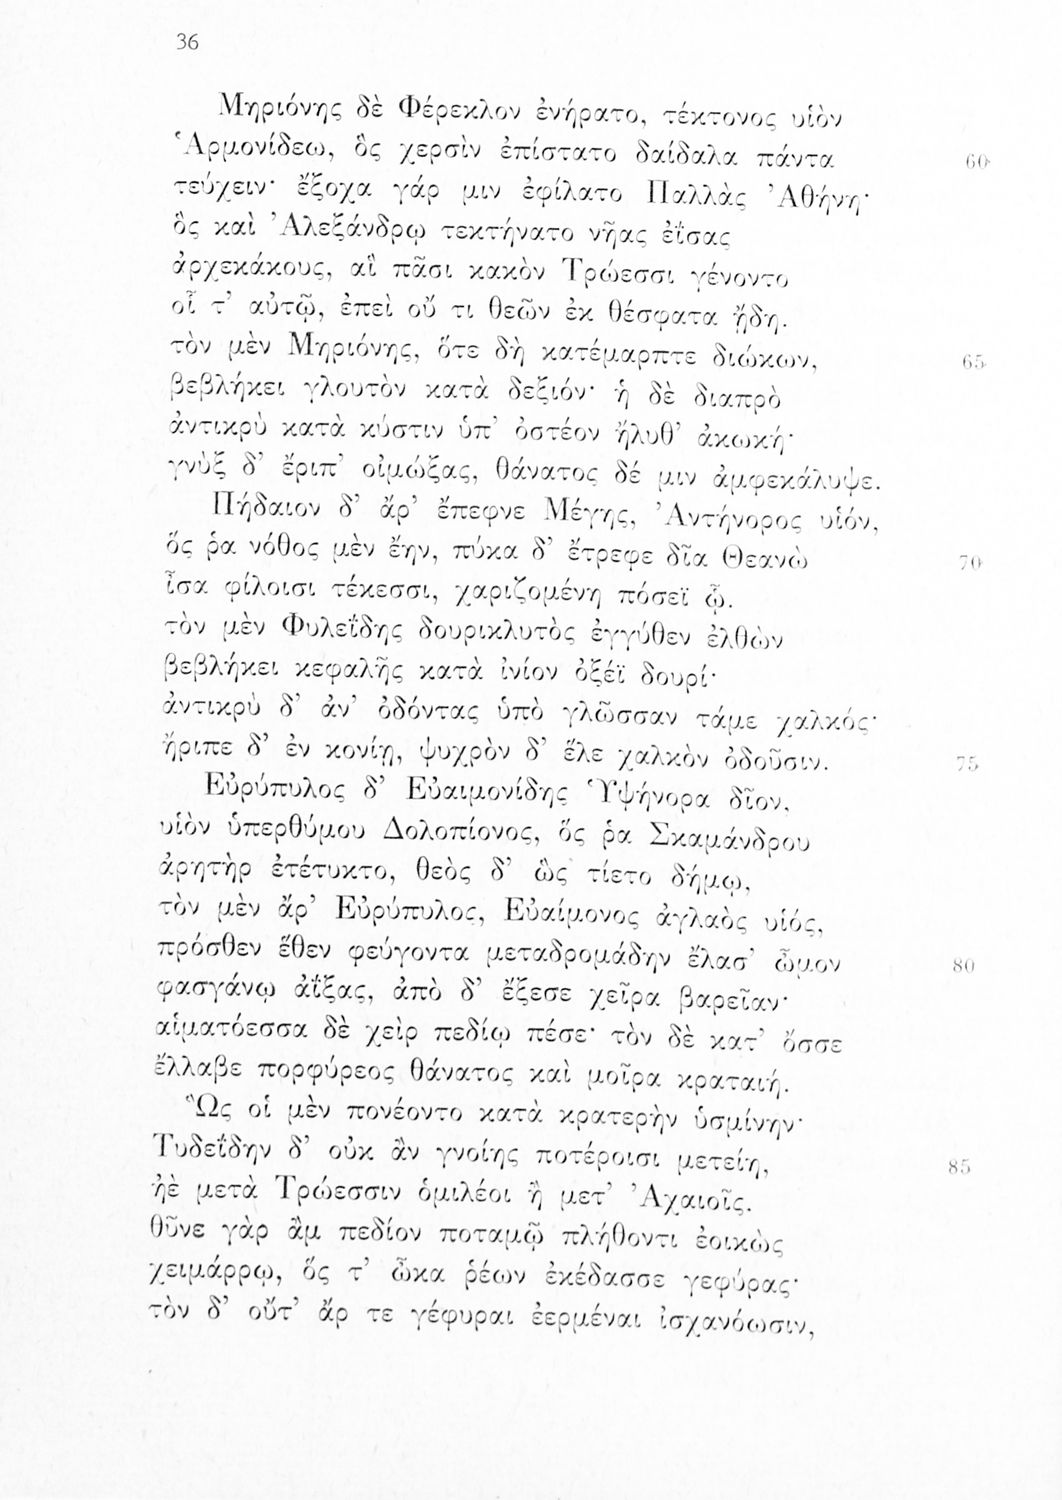 36
Μηριόνης δὲ Φέρεκλον ἐνήρατο, τέκτονος υἱὸν
Ἁρμονίδεω, ὃς χερσὶν ἐπίστατο δαίδαλα πάντα 60
τεύχειν· ἔξοχα γάρ μιν ἐφίλατο Παλλὰς Ἀθήνη·
ὃς καὶ Ἀλεξάνδρῳ τεκτήνατο νῆας ἐΐσας
ἀρχεκάκους, αἳ πᾶσι κακὸν Τρώεσσι γένοντο
οἷ τ' αὐτῷ, ἐπεὶ οὔ τι θεῶν ἐκ θέσφατα ᾔδη.
τὸν μὲν Μηριόνης, ὅτε δὴ κατέμαρπτε διώκων, 65
βεβλήκει γλουτὸν κατὰ δεξιόν· ἡ δὲ διαπρὸ
ἀντικρὺ κατὰ κύστιν ὑπ' ὀστέον ἤλυθ' ἀκωκή·
γνὺξ δ' ἔριπ' οἰμώξας, θάνατος δέ μιν ἀμφεκάλυψε.
Πήδαιον δ' ἄρ' ἔπεφνε Μέγης, Ἀντήνορος υἱόν,
ὅς ῥα νόθος μὲν ἔην, πύκα δ' ἔτρεφε δῖα Θεανὼ 70
ἶσα φίλοισι τέκεσσι, χαριζομένη πόσεϊ ᾧ.
τὸν μὲν Φυλεΐδης δουρικλυτὸς ἐγγύθεν ἐλθὼν
βεβλήκει κεφαλῆς κατὰ ἰνίον ὀξέϊ δουρί·
ἀντικρὺ δ' ἀν' ὀδόντας ὑπὸ γλῶσσαν τάμε χαλκός·
ἤριπε δ' ἐν κονίῃ, ψυχρὸν δ' ἕλε χαλκὸν ὀδοῦσιν. 75
Εὐρύπυλος δ' Εὐαιμονίδης Ὑψήνορα δῖον,
υἱὸν ὑπερθύμου Δολοπίονος, ὅς ῥα Σκαμάνδρου
ἀρητὴρ ἐτέτυκτο, θεὸς δ' ὣς τίετο δήμῳ,
τὸν μὲν ἄρ' Εὐρύπυλος, Εὐαίμονος ἀγλαὸς υἱός,
πρόσθεν ἕθεν φεύγοντα μεταδρομάδην ἔλασ' ὦμον 80
φασγάνῳ ἀΐξας, ἀπὸ δ' ἔξεσε χεῖρα βαρεῖαν·
αἱματόεσσα δὲ χεὶρ πεδίῳ πέσε· τὸν δὲ κατ' ὄσσε
ἔλλαβε πορφύρεος θάνατος καὶ μοῖρα κραταιή.
Ὣς οἱ μὲν πονέοντο κατὰ κρατερὴν ὑσμίνην·
Τυδεΐδην δ' οὐκ ἂν γνοίης ποτέροισι μετείη, 85
ἠὲ μετὰ Τρώεσσιν ὁμιλέοι ἦ μετ' Ἀχαιοῖς.
θῦνε γὰρ ἂμ πεδίον ποταμῷ πλήθοντι ἐοικὼς
χειμάρρῳ, ὅς τ' ὦκα ῥέων ἐκέδασσε γεφύρας·
τὸν δ' οὔτ' ἄρ τε γέφυραι ἐεργμέναι ἰσχανόωσιν,